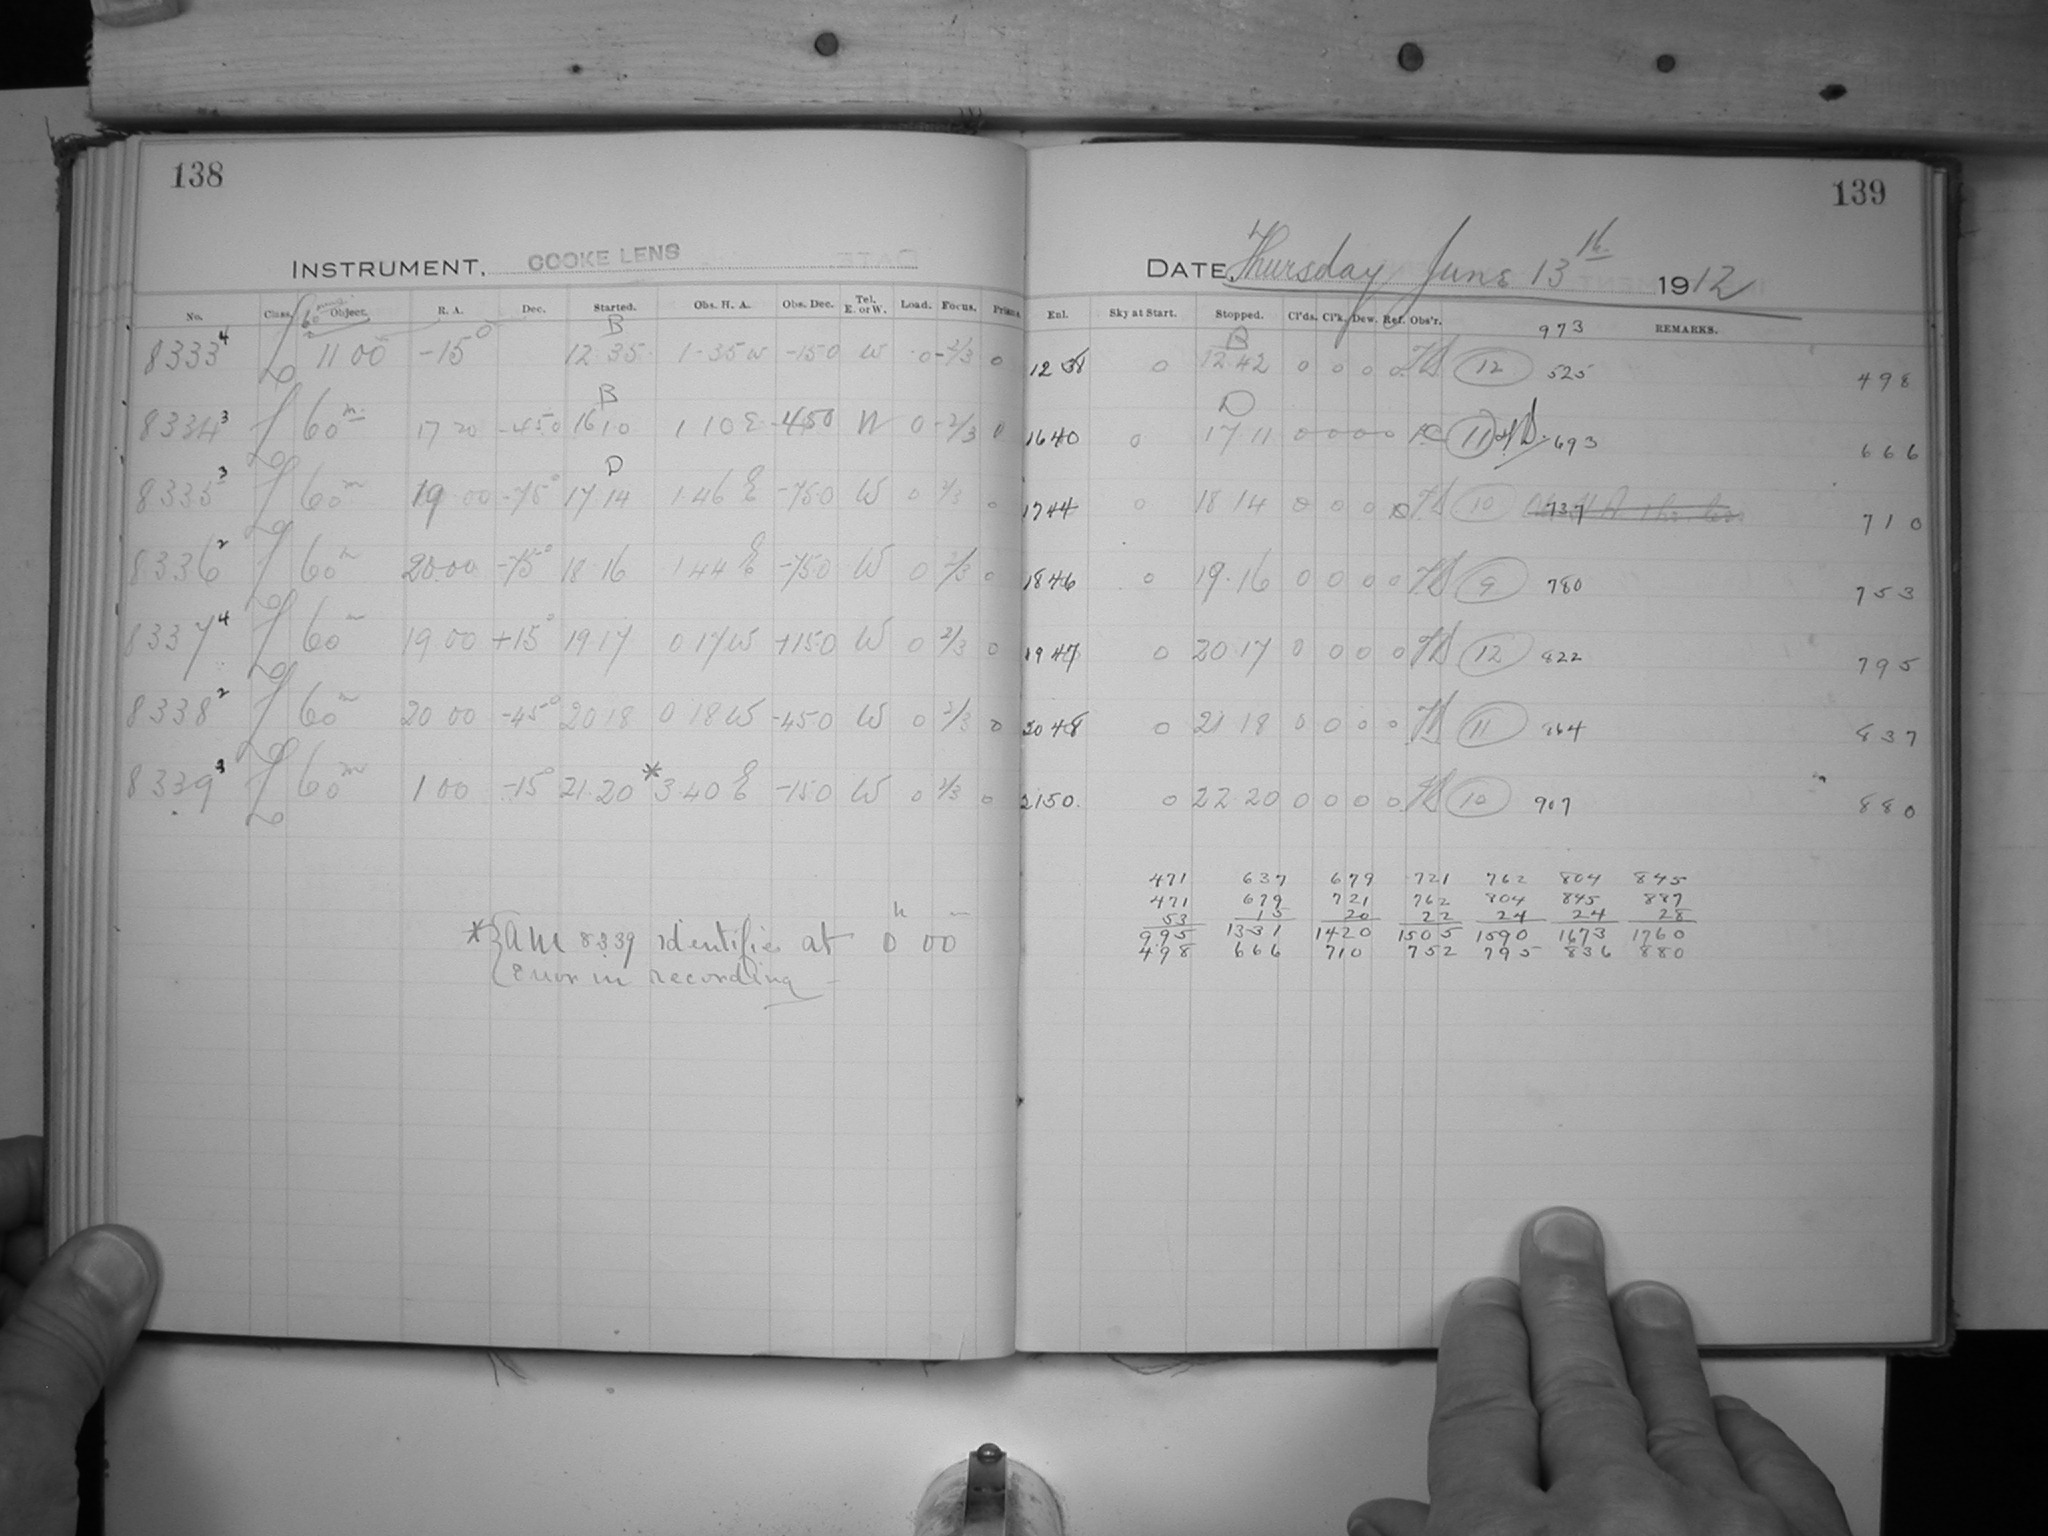 138
INSTRUMENT, COOKE LENS
No. Class. Object. R. A. Dec. Started. Obs. H. A. Obs. Dec. Tel. E. or W. Load. Focus. Prisms
B
8333 4 11 00 -15° 12 35 1 35 W -15 0 W 0 -2/3 0
B
8334 3 60 m 17 20 -45 0 16 10 1 10 E -45 0 W 0 -2/3 0
D
8335 3 60 m 19 00 -75° 17 14 1 46 E -75 0 W 0 2/3 0
8336 2 60 m 20 00 -75° 18 16 1 44 E -75 0 W 0 2/3 0
8337 4 60 m 19 00 +15° 19 17 0 17 W +15 0 W 0 2/3 0
8338 2 60 m 20 00 -45° 20 18 0 18 W -45 0 W 0 2/3 0
8339 3 60 m 1 00 -15° 21 20 * 3 40 E -15 0 W 0 2/3 0
* AM 8339 identifies at 0 h 00 m
Error in recording
139
DATE, Thursday June 13th 1912
Enl. Sky at Start. Stopped. Cl'ds. Cl'k. Dew. Ref. Obs'r. 973 REMARKS.
B
12 38 0 12 42 0 0 0 0 12 525 498
D
16 40 0 17 11 0 0 0 0 11 693 666
17 44 0 18 14 0 0 0 0 10 737 710
18 46 0 19 16 0 0 0 0 9 780 753
19 47 0 20 17 0 0 0 0 12 822 795
20 48 0 21 18 0 0 0 0 11 864 837
21 50 0 22 20 0 0 0 0 10 907 880
471 637 679 721 762 804 845
471 679 721 762 804 845 887
53 15 20 22 24 24 28
995 1331 1420 1505 1590 1673 1760
498 666 710 752 795 836 880